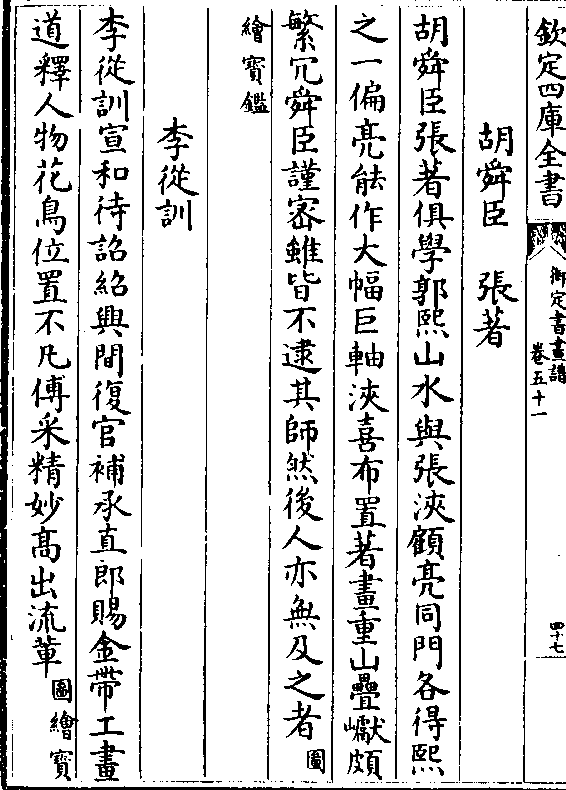 欽定四庫全書
御定書畫譜
卷五十一
四十七
胡舜臣　張著
胡舜臣張著俱學郭熙山水與張浹顧亮同門各得熙
之一偏亮能作大幅巨軸浹喜布置著畫重山疊巘頗
繁冗舜臣謹密雖皆不逮其師然後人亦無及之者圖
繪寶鑑
李從訓
李從訓宣和待詔紹興間復官補承直郎賜金帶工畫
道釋人物花鳥位置不凡傅采精妙高出流輩圖繪寶